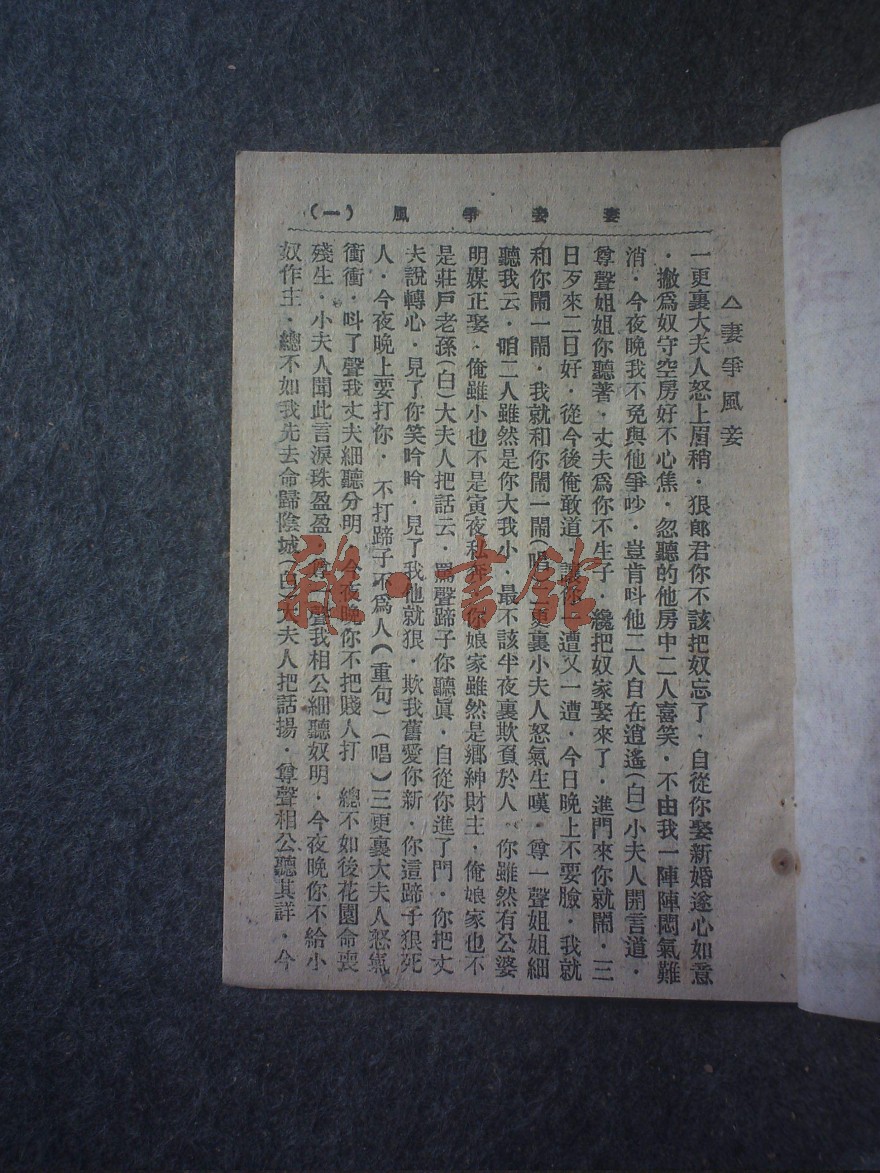 妻妾爭風（一）
△妻爭風妾
一更裏大夫人怒上眉稍．狠郎君你不該把奴忘了．自從你娶新婚遂心如意
．撇爲奴守空房好不心焦．忽聽的他房中二人喜笑．不由我一陣陣悶氣難
消．今夜晚我不免與他爭吵．豈肯呌他二人自在逍遙(白)小夫人開言道．
尊聲姐姐你聽著．丈夫爲你不生子．纔把奴家娶來了．進門來你就鬧．三
日歹來二日好．從今後俺敢道．讓你一遭又一遭．今日晚上不要臉．我就
和你鬧一鬧．我就和你鬧一鬧(唱)二更裏小夫人怒氣生嘆．尊一聲姐姐細
聽我云．咱二人雖然是你大我小．最不該半夜裏欺負於人．你雖然有公婆
明媒正娶．俺雖小也不是寅夜私奔．你娘家雖然是鄉紳財主．俺娘家也不
是莊戶老孫(白)大夫人把話云．罵聲蹄子你聽眞．自從你進了門．你把丈
夫說轉心．見了你笑吟吟．見了我他就狠．欺我舊愛你新．你這蹄子狠死
人．今夜晚上要打你．不打蹄子不爲人(重句)(唱)三更裏大夫人怒氣
衝衝．呌了聲我丈夫細聽分明．今夜晚你不把賤人打　總不如後花園命喪
殘生．小夫人聞此言淚珠盈盈．尊一聲我相公細聽奴明．今夜晚你不給小
奴作主．總不如我先去命歸陰城(白)大夫人把話揚．尊聲相公聽其詳．今
雜·書館